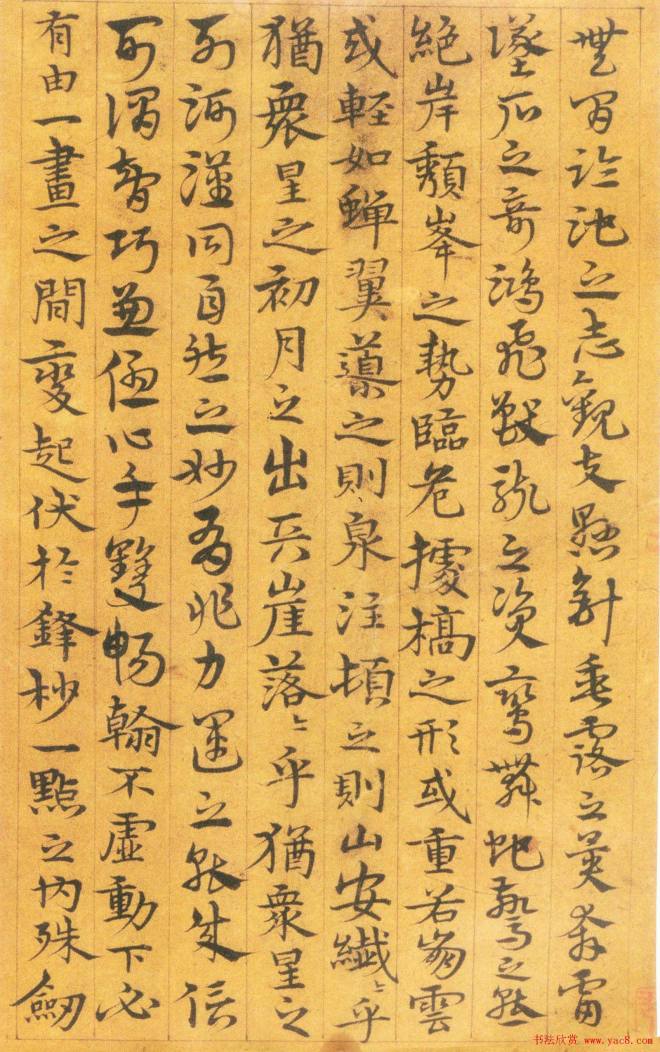 無間臨池之志觀夫懸針垂露之異奔雷
墜石之奇鴻飛獸駭之資鸞舞蛇驚之態
絕岸頹峯之勢臨危據槁之形或重若崩雲
或輕如蟬翼導之則泉注頓之則山安纖〻乎
猶眾星之初月之出天崖落〻乎猶眾星之
列河漢同自然之妙有非力運之能成信
可謂智巧兼優心手雙暢翰不虛動下必
有由一畫之間變起伏於鋒杪一點之內殊衄
书法欣赏 www.yac8.com